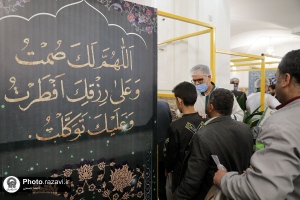 اَللّٰهُمَّ لَكَ صُمْتُ
وَعَلىٰ رِزْقِكَ اَفْطَرْتُ
وَعَلَيْكَ تَوَكَّلْتُ
Photo.razavi.ir